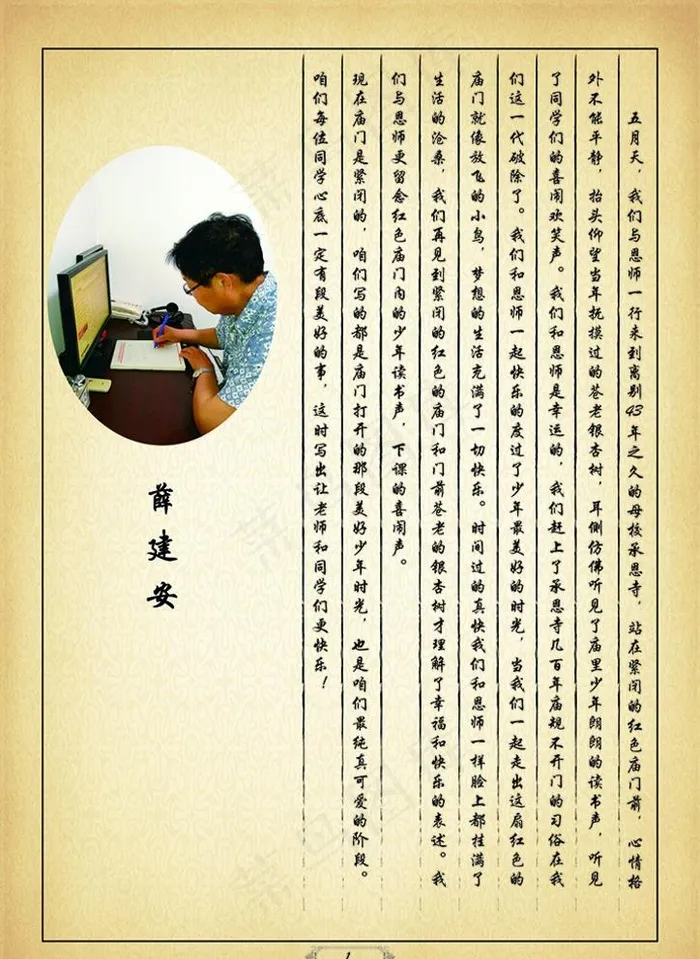 五月天，我们与恩师一行来到离别43年之久的母校承恩寺，站在紧闭的红色庙门前，心情格
外不能平静，抬头仰望当年抚摸过的苍老银杏树，耳侧仿佛听见了庙里少年朗朗的读书声，听见
了同学们的喜闹欢笑声。我们和恩师是幸运的，我们赶上了承恩寺几百年庙规不开门的习俗在我
们这一代破除了。我们和恩师一起快乐的度过了少年最美好的时光，当我们一起走出这扇红色的
庙门就像放飞的小鸟，梦想的生活充满了一切快乐。时间过的真快我们和恩师一样脸上都挂满了
生活的沧桑，我们再见到紧闭的红色的庙门和门前苍老的银杏树才理解了幸福和快乐的表述。我
们与恩师更留念红色庙门内的少年读书声，下课的喜闹声。
现在庙门是紧闭的，咱们写的都是庙门打开的那段美好少年时光，也是咱们最纯真可爱的阶段。
咱们每位同学心底一定有段美好的事，这时写出让老师和同学们更快乐！
薛建安
1